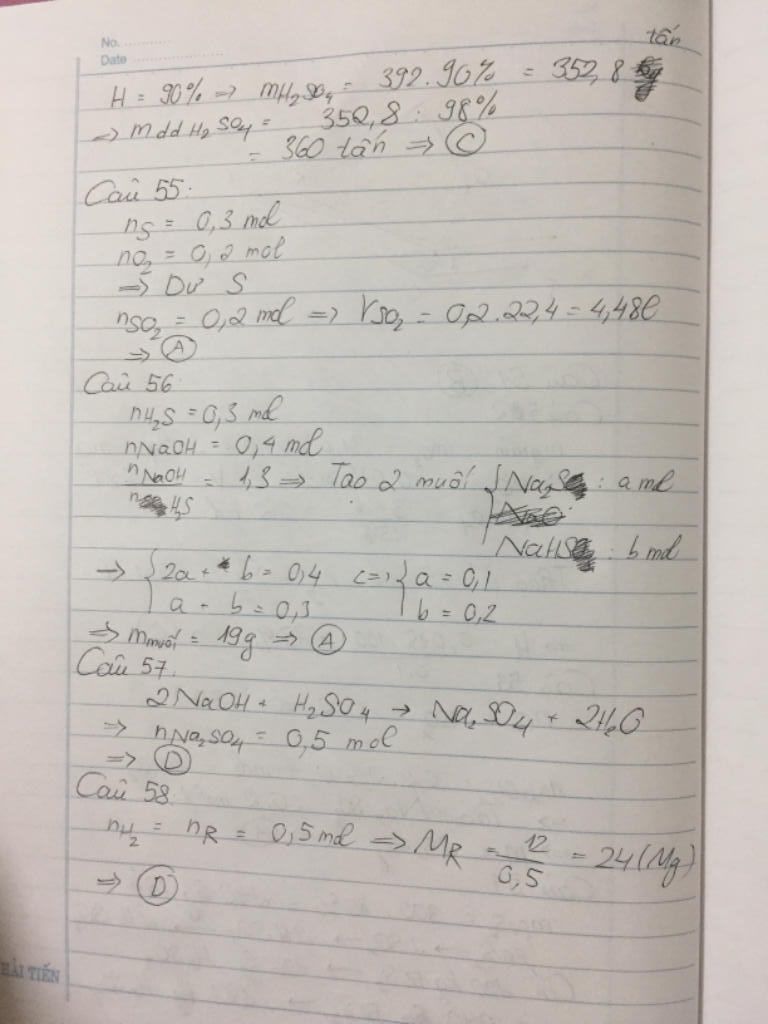 No. ............
Date ....................
tấn
H = 90% => mH₂SO₄ = 392.90% = 352,8
=> mddH₂SO₄ = 352,8 : 98%
= 360 tấn => C
Câu 55:
nS = 0,3 mol
nO₂ = 0,2 mol
=> Dư S
nSO₂ = 0,2 mol => VSO₂ = 0,2.22,4 = 4,48l
=> A
Câu 56
nH₂S = 0,3 mol
nNaOH = 0,4 mol
nNaOH / nH₂S = 1,3 => Tạo 2 muối { Na₂S : a mol
NaHS : b mol
→ { 2a + b = 0,4 <=> { a = 0,1
a + b = 0,3 b = 0,2
=> mmuối = 19g => A
Câu 57.
2NaOH + H₂SO₄ → Na₂SO₄ + 2H₂O
=> nNa₂SO₄ = 0,5 mol
=> D
Câu 58
nH₂ = nR = 0,5 mol => MR = 12/0,5 = 24 (Mg)
=> D
HẢI TIẾN